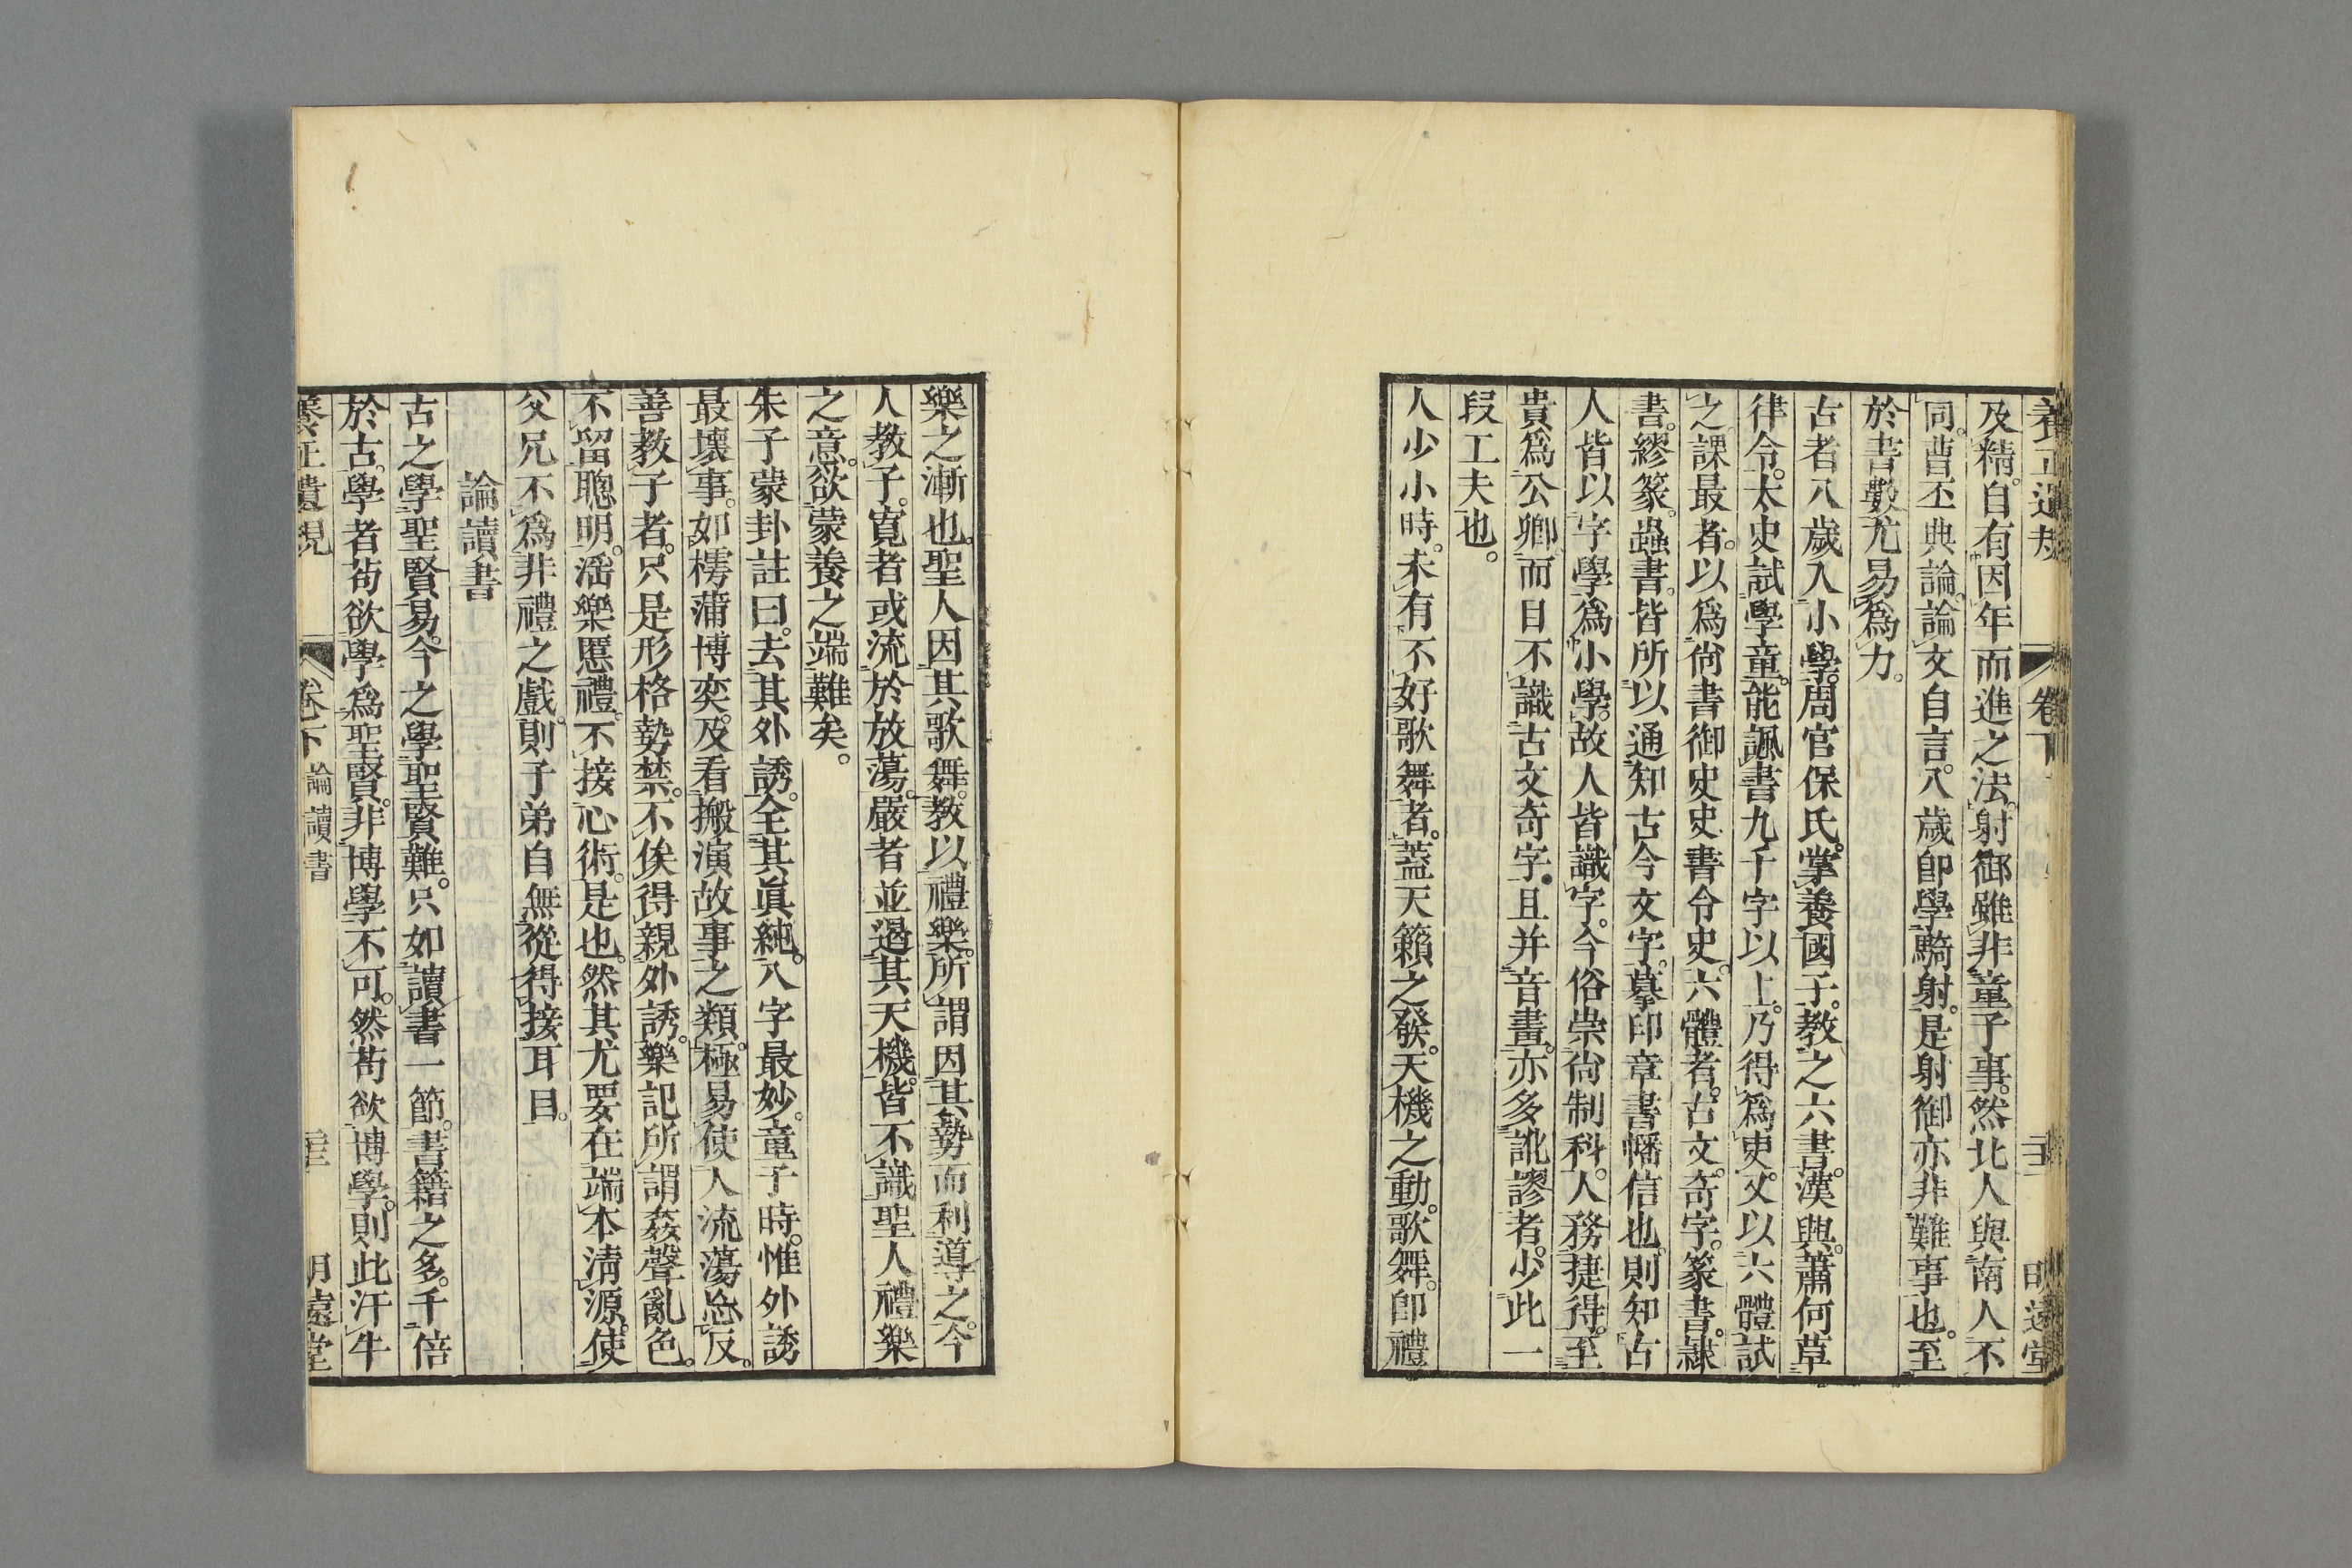 養正遺規 卷下 二十二 明遠堂
及精。自有因年而進之法。射御雖非童子事。然北人與南人不
同。曹丕典論。論文自言。八歲卽學騎射。是射御亦非難事也。至
於書數尤易爲力。
古者八歲入小學。周官保氏。掌養國子。教之六書。漢興。蕭何草
律令。太史試學童。能諷書九千字以上。乃得爲吏。又以六體試
之。課最者。以爲尙書御史史書令史。六體者。古文。奇字。篆書。隸
書。繆篆。蟲書。皆所以通知古今文字。摹印章書幡信也。則知古
人皆以字學爲小學。故人皆識字。今俗崇尙制科。人務捷得。至
貴爲公卿。而目不識古文奇字。且并音畫。亦多訛謬者。少此一
段工夫也。
人少小時。未有不好歌舞者。蓋天籟之發。天機之動。歌舞。卽禮
樂之漸也。聖人因其歌舞。教以禮樂。所謂因其勢而利導之。今
人教子。寬者或流於放蕩。嚴者並遏其天機。皆不識聖人禮樂
之意。欲蒙養之端難矣。
朱子蒙卦註曰。去其外誘。全其眞純。八字最妙。童子時。惟外誘
最壞事。如樗蒲博奕。及看搬演故事之類。極易使人流蕩忘反。
善教子者。只是形格勢禁。不俟得親外誘。樂記所謂姦聲亂色。
不留聰明。滛樂慝禮。不接心術。是也。然其尤要在端本淸源。使
父兄不爲非禮之戲。則子弟自無從得接耳目。
論讀書
古之學聖賢易。今之學聖賢難。只如讀書一節。書籍之多。千倍
於古。學者苟欲學爲聖賢。非博學不可。然苟欲博學。則此汗牛
養正遺規 卷下 論讀書 二十三 明遠堂